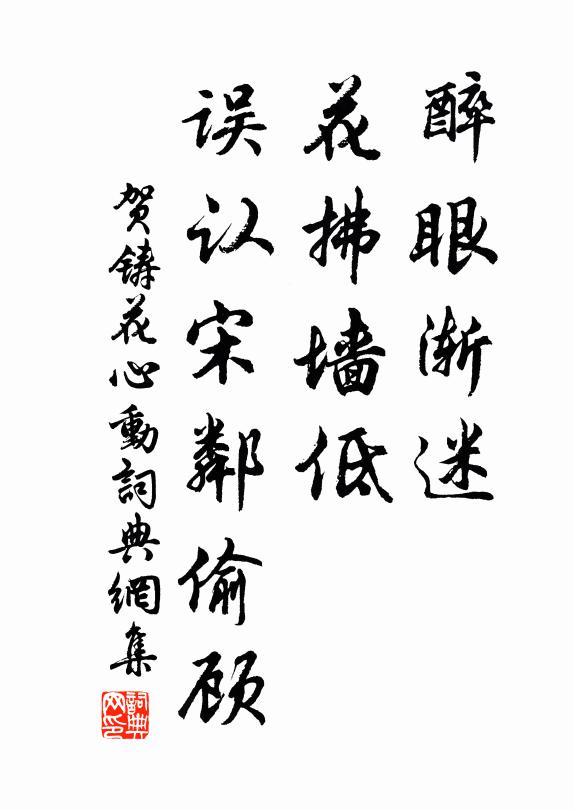 醉眼渐迷
花拂墙低
误认宋鄰偷顾
贺铸花心動詞典網集
詞典网印